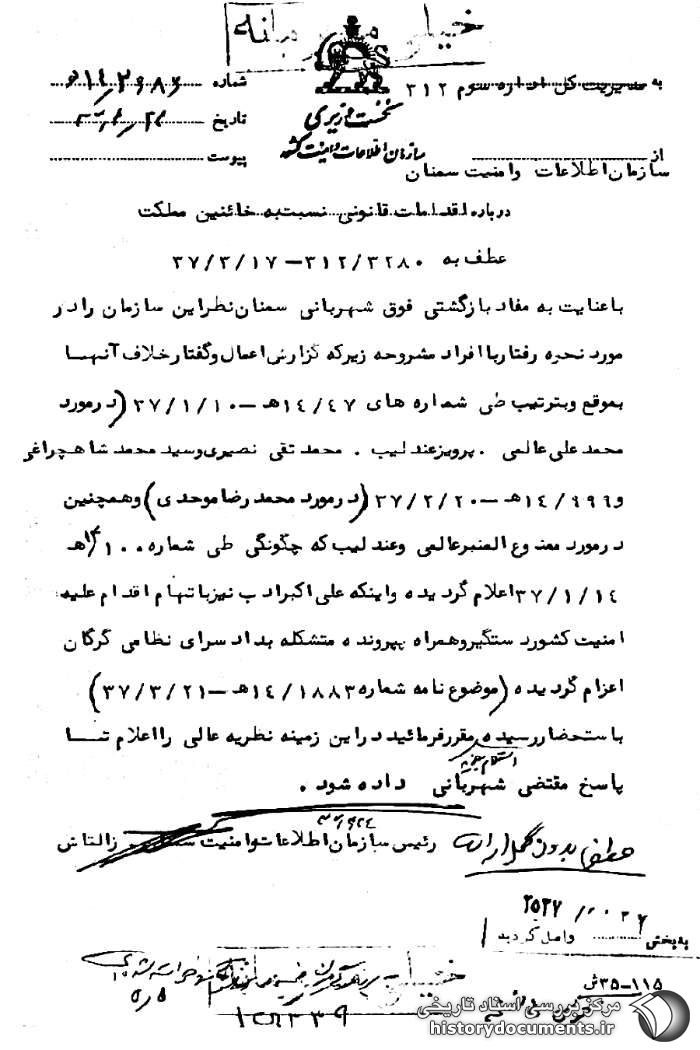 خیلی محرمانه
به مدیریت کل اداره سوم ۳۱۲
شماره
نخست وزیری
تاریخ
سازمان اطلاعات و امنیت کشور
پیوست
از
سازمان اطلاعات وامنیت سمنان
درباره اقدامات قانونی نسبت به خائنین مملکت
عطف به ۳۱۲/۳۲۸۰-۳۷/۳/۱۷
باعنایت به مفاد بازگشتی فوق شهربانی سمنان نظراین سازمان رادر
مورد نحوه رفتاربا افراد مشروحه زیرکه گزارش اعمال وگفتارخلاف آنهـا
بموقع وبترتیب طی شماره های ۱۴/۴۷هـ-۳۷/۱/۱۰ (درمورد
محمد علی عالمی . پرویزعندلیب . محمد تقی نصیری وسید محمد شاهچراغی
و۱۴/۹۹۶هـ-۳۷/۲/۲۰ (درمورد محمد رضا موحدی) وهمچنین
درمورد ممنوع المنبرعالمی وعندلیب که چگونگی طی شماره ۱۴/۱۰۰هـ
۳۷/۱/۱۴ اعلام گردیده واینکه علی اکبرادب نیزباتهام اقدام علیه
امنیت کشوردستگیروهمراه بپرونده متشکله بدادسرای نظامی گرگان
اعزام گردیده (موضوع نامه شماره ۱۴/۱۸۸۳هـ-۳۷/۳/۲۱)
باستحضاررسیده مقررفرمائید دراین زمینه نظریه عالی رااعلام تـا
پاسخ مقتضی شهربانی داده شود .
رئیس سازمان اطلاعات وامنیت سمنان . زالتاش
۲۵۳۷
به بخش
واصل گردید
۱۱۵-۳۵ش
مرکز بررسی اسناد تاریخی
historydocuments.ir